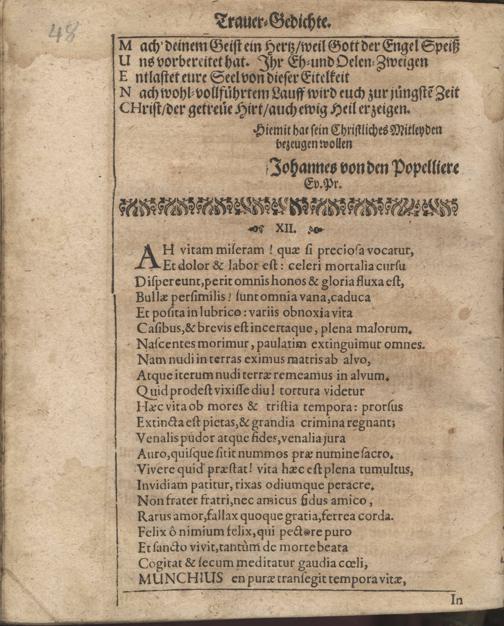 48
Trauer-Gedichte.
M ach' deinem Geist ein Hertz/weil Gott der Engel Speiß
U ns vorbereitet hat. Ihr Eh-und Oelen-Zweigen
E ntlastet eure Seel von dieser Eitelkeit
N ach wohl-vollführtem Lauff wird euch zur jüngstē Zeit
CHrist/der getreüe Hirt/auch ewig Heil erzeigen.
Hiemit hat sein Christliches Mitleyden
bezeugen wollen
Johannes von den Popelliere
Ev. Pr.
XII.
AH vitam miseram! quæ si preciosa vocatur,
Et dolor & labor est: celeri mortalia cursu
Dispereunt, perit omnis honos & gloria fluxa est,
Bullæ persimilis! sunt omnia vana, caduca
Et posita in lubrico: variis obnoxia vita
Casibus, & brevis est incertaque, plena malorum.
Nascentes morimur, paulatim extinguimur omnes.
Nam nudi in terras eximus matris ab alvo,
Atque iterum nudi terræ remeamus in alvum.
Quid prodest vixisse diu! tortura videtur
Hæc vita ob mores & tristia tempora: prorsus
Extincta est pietas, & grandia crimina regnant;
Venalis pudor atque fides, venalia jura
Auro, quisque sitit nummos præ numine sacro.
Vivere quid præstat! vita hæc est plena tumultus,
Invidiam patitur, rixas odiumque peracre.
Non frater fratri, nec amicus fidus amico,
Rarus amor, fallax quoque gratia, ferrea corda.
Felix ô nimium felix, qui pectore puro
Et sancto vivit, tantùm de morte beata
Cogitat & secum meditatur gaudia cœli,
MUNCHIUS en puræ transegit tempora vitæ,
In